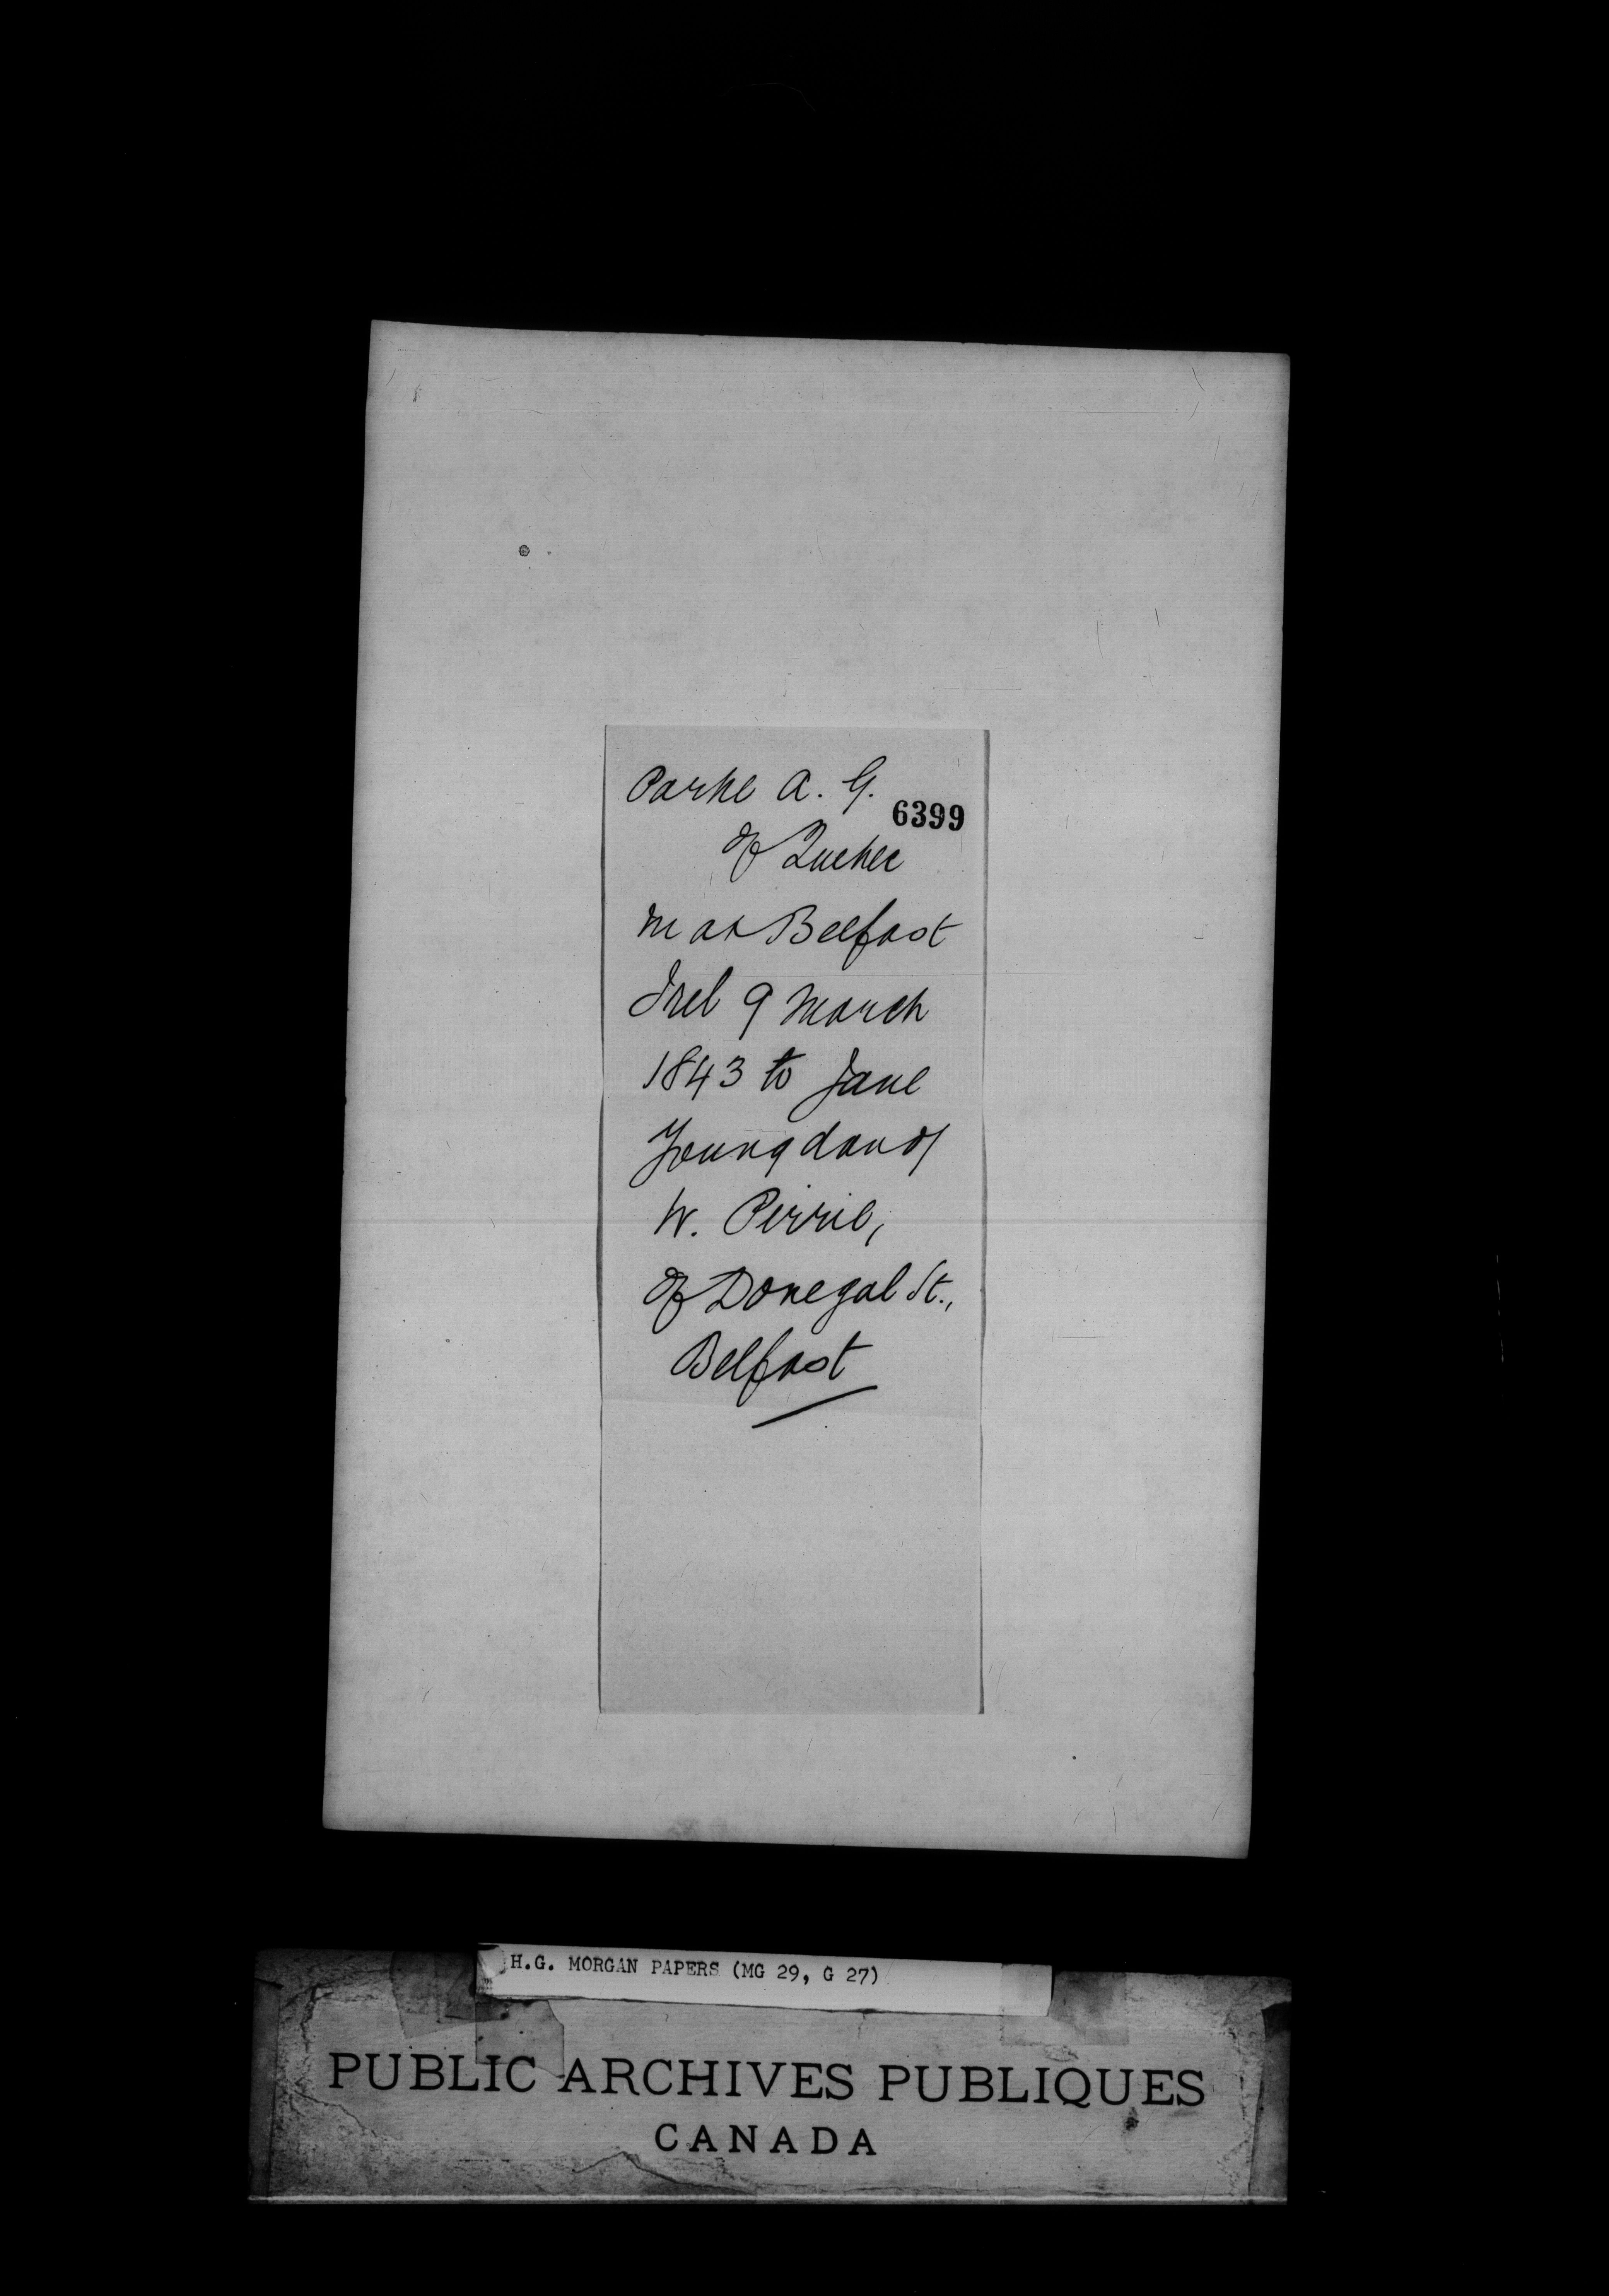 Parke A. G.
6399
of Quebec
m at Belfast
Irel 9 March
1843 to Jane
Young dau of
W. Pirrie,
of Donegal St.,
Belfast
H.G. MORGAN PAPERS (MG 29, G 27)
PUBLIC ARCHIVES PUBLIQUES
CANADA